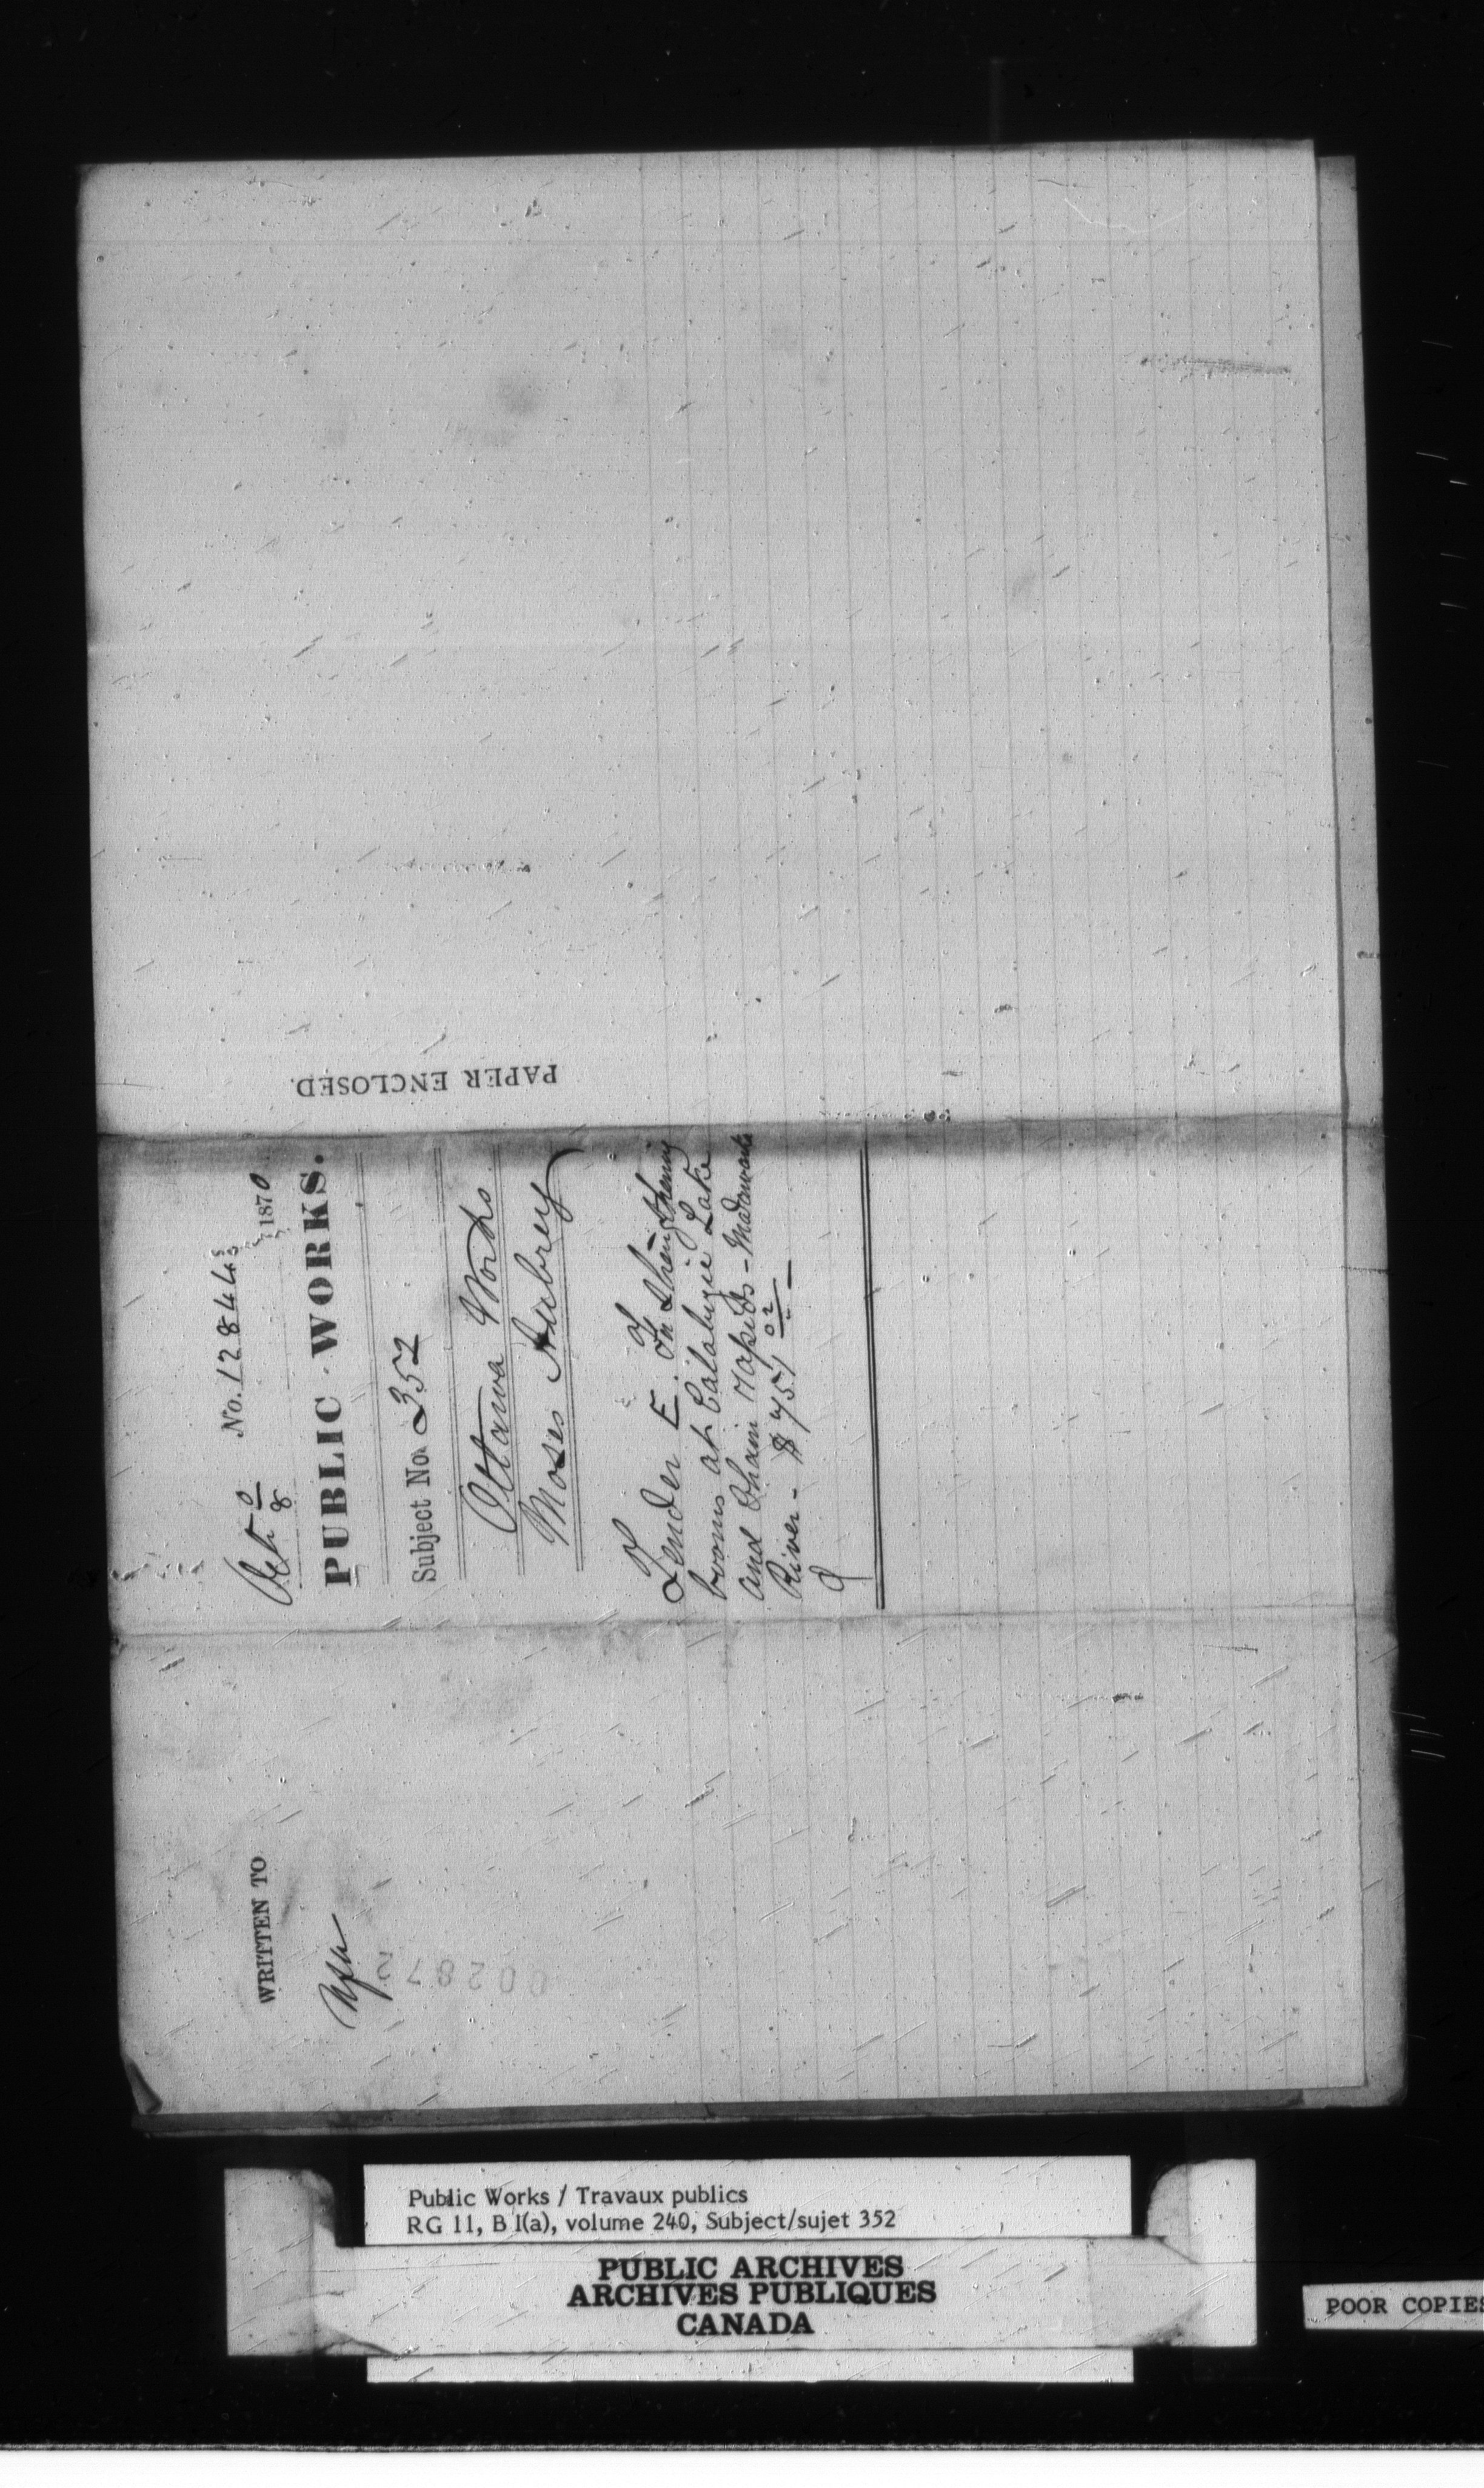 Oct 8 No. 12844 1870
PUBLIC WORKS.
Subject No. 352
Ottawa Works
Moses Aubrey
Tender E. For Strengthening
booms at Calabogie Lake
and Chain Rapids - Madawaska
River - $751
PAPER ENCLOSED.
WRITTEN TO
00287
Public Works / Travaux publics
RG 11, B 1(a), volume 240, Subject/sujet 352
PUBLIC ARCHIVES
ARCHIVES PUBLIQUES
CANADA
POOR COPIES